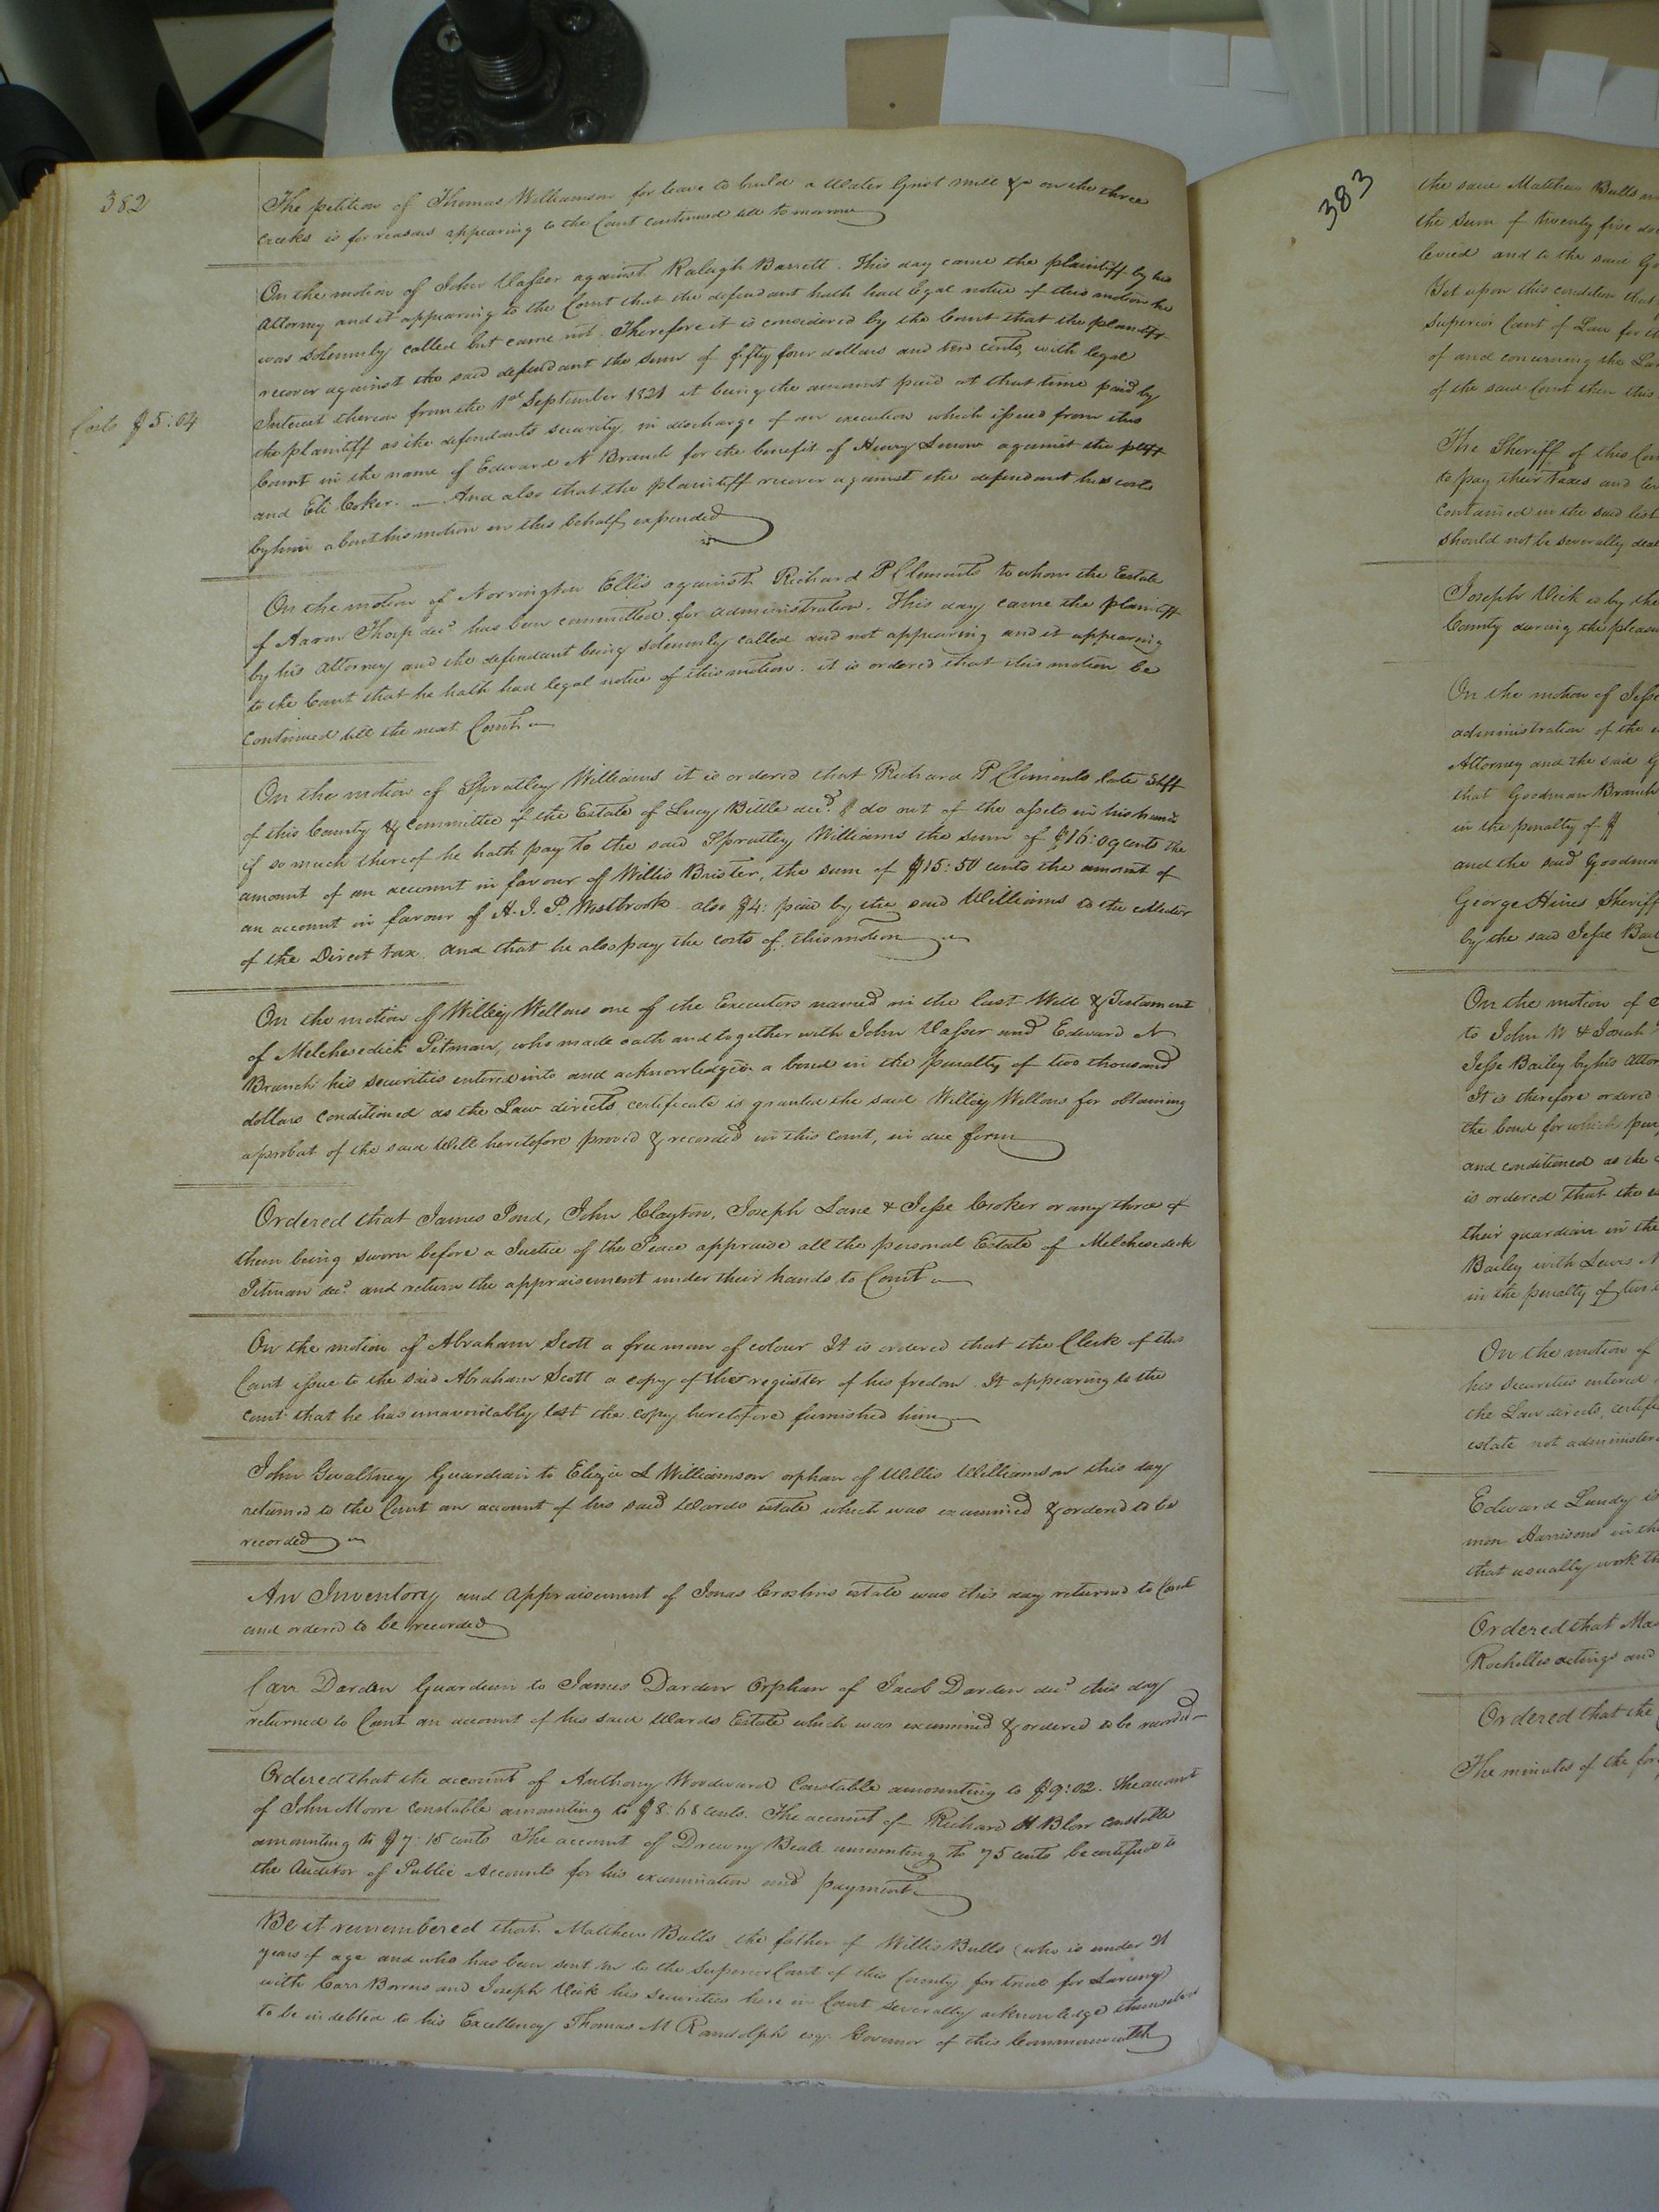 382
The petition of Thomas Williamson for leave to build a Water Grist mill &c on the three
creeks is for reasons appearing to the Court continued till to morrow
On the motion of John Vasser against Ralegh Barrett. This day came the plaintiff by his
Attorney and it appearing to the Court that the defendant hath had legal notice of this motion he
was solemnly called but came not. Therefore it is considered by the Court that the plaintiff
recover against the said defendant the sum of fifty four dollars and cents, with legal
Interest thereon from the 1st September 1821 it being the amount paid at that time paid by
Costs $5:04
the plaintiff as the defendants security, in discharge of an execution which issued from this
Court in the name of Edward N Branch for the benefit of Henry against the pltff
and Eli Coker. — And also that the plaintiff recover against the defendant his costs
by him about his motion in this behalf expended
On the motion of Norrington Ellis against Richard P Clements to whom the Estate
of Aaron Thorp decd has been committed for administration. This day came the plaintiff
by his Attorney and the defendant being solemnly called and not appearing and it appearing
to the Court that he hath had legal notice of this motion. it is ordered that this motion be
continued till the next Court
On the motion of Spratley Williams it is ordered that Richard P Clements late Shff
of this County & Committee of the Estate of Lucy Bittle decd do out of the assets in his hands
if so much thereof he hath pay to the said Spratley Williams the sum of $16:09 cents the
amount of an account in favour of Willis Brister, the sum of $15:50 cents the amount of
an account in favour of H. J. P. Westbrook also $4: paid by the said Williams to the
of the Direct tax. and that he also pay the costs of this motion
On the motion of Willey Wellons one of the Executors named in the last Will & Testament
of Melchesedick Pitman, who made oath and together with John Vasser and Edward N
Branch his securities entered into and acknowledged a bond in the penalty of two thousand
dollars conditioned as the Law directs, certificate is granted the said Willey Wellons for obtaining
a probat of the said Will heretofore proved & recorded in this Court, in due form
Ordered that James Pond, John Clayton, Joseph Lane & Jesse Croker or any three of
them being sworn before a Justice of the Peace appraise all the personal Estate of Melchesedeck
Pitman decd and return the appraisement under their hands to Court
On the motion of Abraham Scott a free man of colour It is ordered that the Clerk of this
Court issue to the said Abraham Scott a copy of the register of his fredom. It appearing to the
Court that he has unavoidably lost the copy heretofore furnished him
John Gwaltney Guardian to Eliza S Williamson orphan of Willis Williamson this day
returned to the Court an account of his said Wards estate which was examined & ordered to be
recorded
An Inventory and Appraisement of Jonas estate was this day returned to Court
and ordered to be recorded
Carr Darden Guardian to James Darden Orphan of Jacob Darden decd this day
returned to Court an account of his said Wards Estate which was examined & ordered to be recorded
Ordered that the account of Anthony Woodward Constable amounting to $9:02. The account
of John Moore constable amounting to $8:68 cents. The account of Richard H Blow constable
amounting to $7:15 cents The account of Drewry Beale amounting to 75 cents be certified to
the Auditor of Public Accounts for his examination and payment
Be it remembered that Matthew Bulls the father of Willis Bulls (who is under 21
years of age and who has been sent on to the Superior Court of this County for trial for Larceny)
with Carr Bowers and Joseph Vick his securities here in Court severally acknowledge themselves
to be indebted to his Excellency Thomas M Randolph esqr. Governor of this Commonwealth
383
the said Matthew Bulls
the sum of twenty five
levied and to the said
Yet upon this condition that
Superior Court of Law for
of and concerning the
of the said Court then this
The Sheriff of this
to pay their taxes and
contained in the said list
should not be severally
Joseph Vick is by the
County during the
On the motion of Jesse
administration of the
Attorney and the said
that Goodman Branch
in the penalty of $
and the said
George Hines Sheriff
by the said Jesse
On the motion of
to John W & Josiah
Jesse Bailey by his
It is therefore ordered
the bond for which
and conditioned as the
is ordered that the
their guardian in the
Bailey with Lewis
in the penalty of
On the motion of
his securities entered
the Law directs,
estate not
Edward Lundy is
mon Harrisons in the
that usually work
Ordered that
Rochelles actings and
Ordered that the
The minutes of the